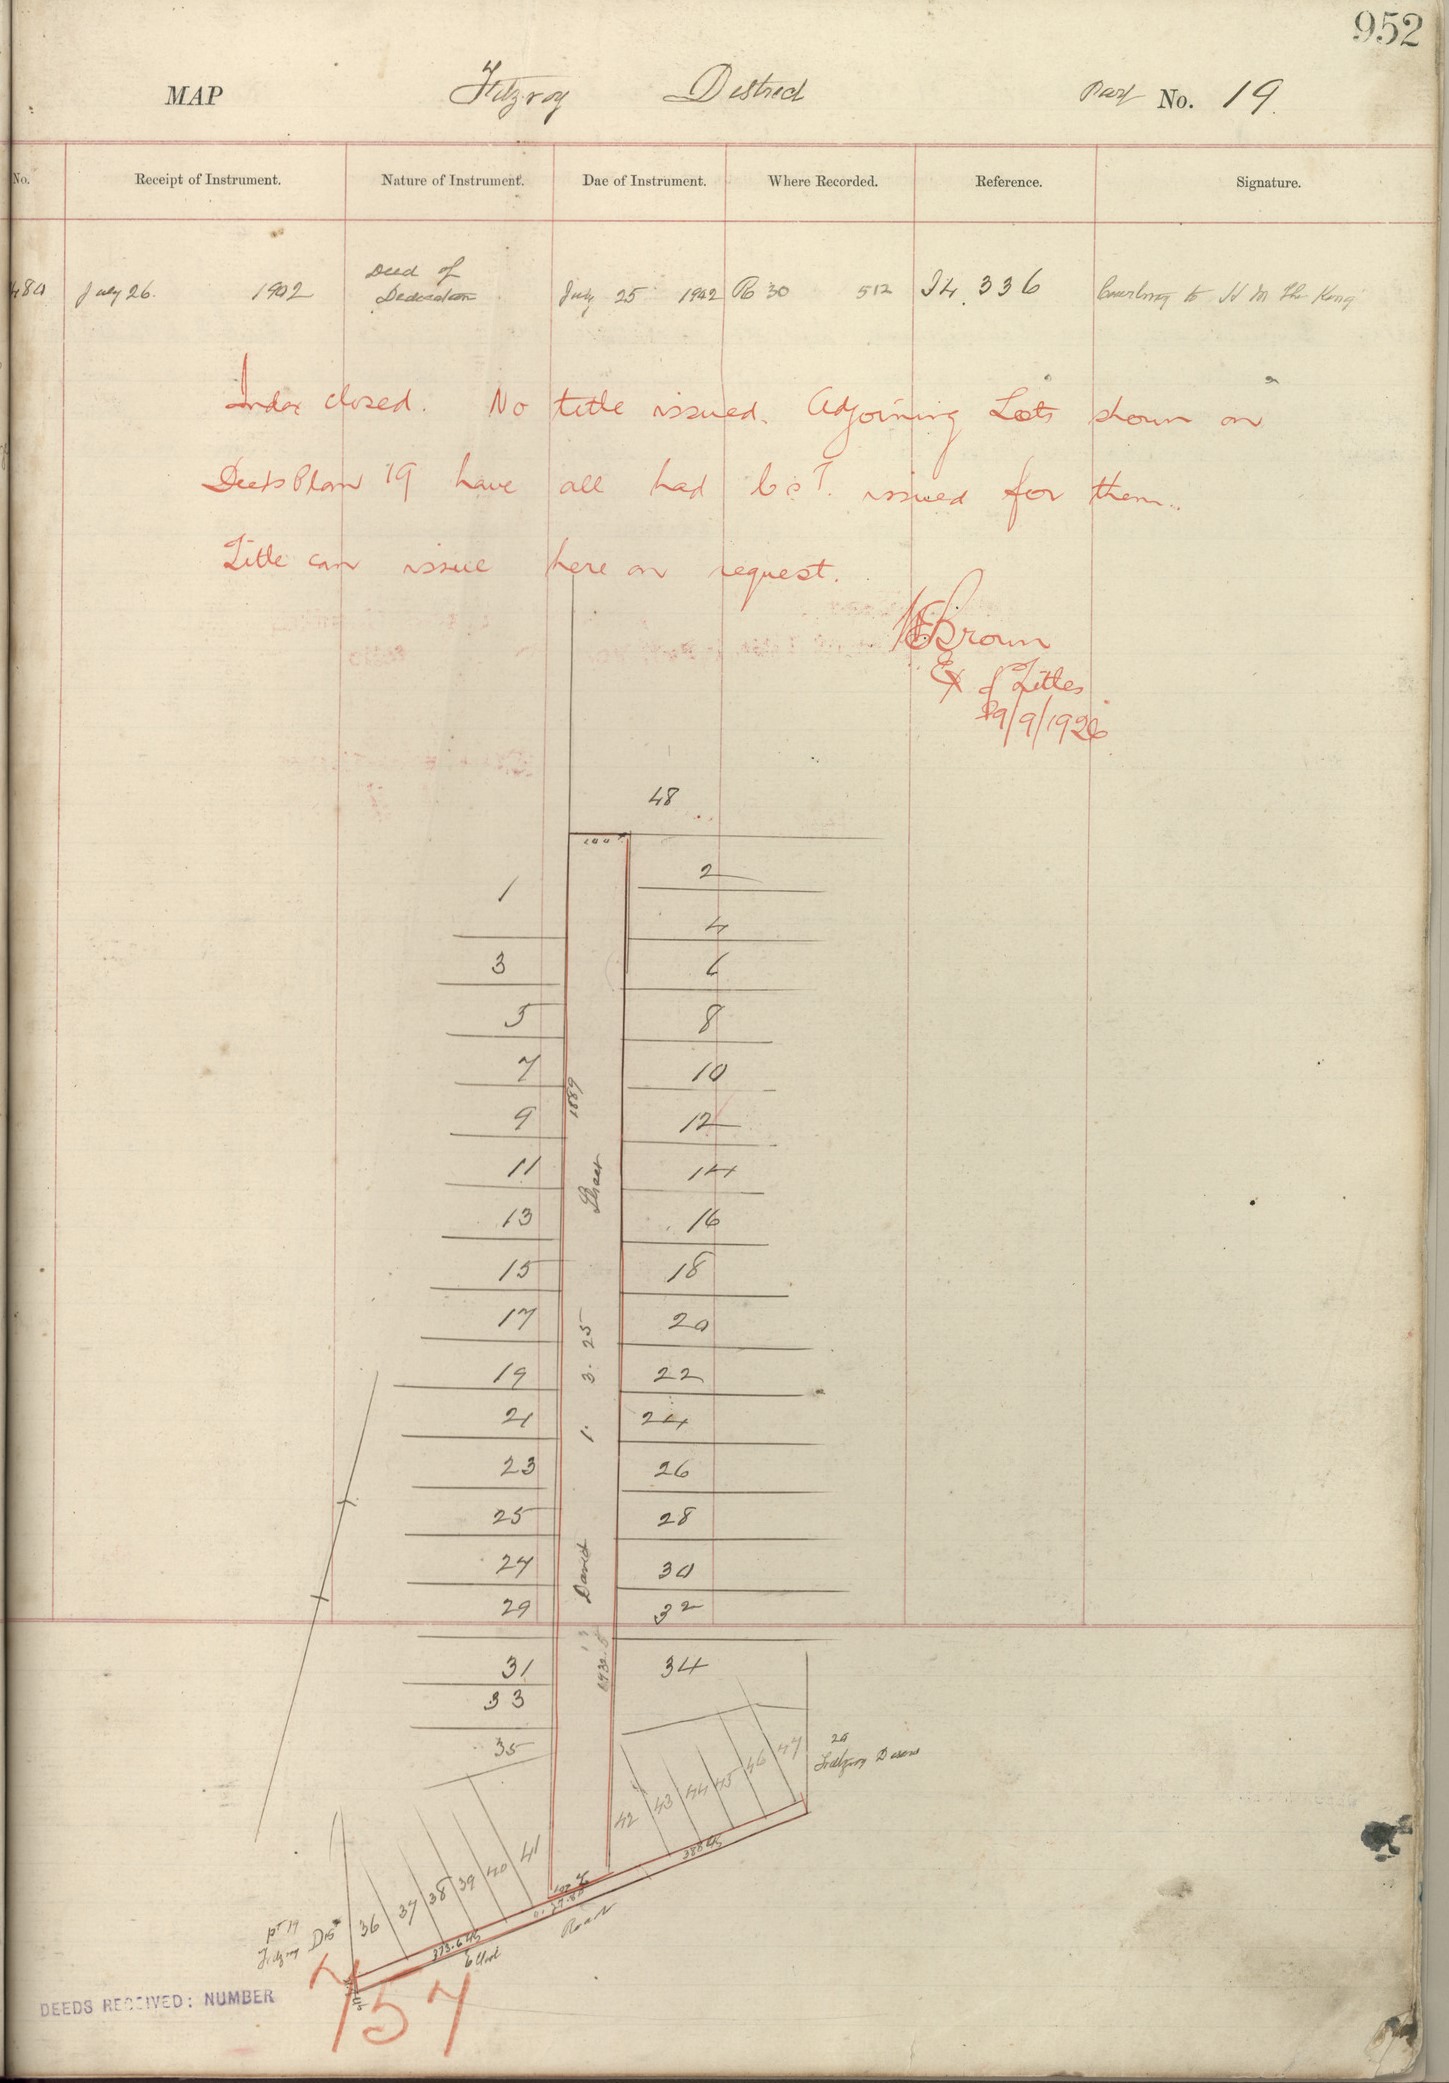 952
MAP Fitzroy District Part No. 19
No. Receipt of Instrument. Nature of Instrument. Dae of Instrument. Where Recorded. Reference. Signature.
July 26. 1902 Deed of Dedication July 25 1902 30 512 I4. 336 to H M The King
Index closed. No title issued. Adjoining Lots shown on
Deeds Plan 19 have all had Cs T. issued for them.
Title can issue here on request.
Brown
Ex of Titles
9/1926
48
100
1 2
4
3 6
5 8
7 10
1889
9 12
11 14
Street
13 16
15 18
17 20
1. 3. 25
19 22
21 24
23 26
25 28
David
27 30
29 32
31 34
33
35
42 43 44 45 46 47
29
Fitzroy
36 37 38 39 40 41
Road
pt 19
Fitzroy Dist
DEEDS RECEIVED: NUMBER
757